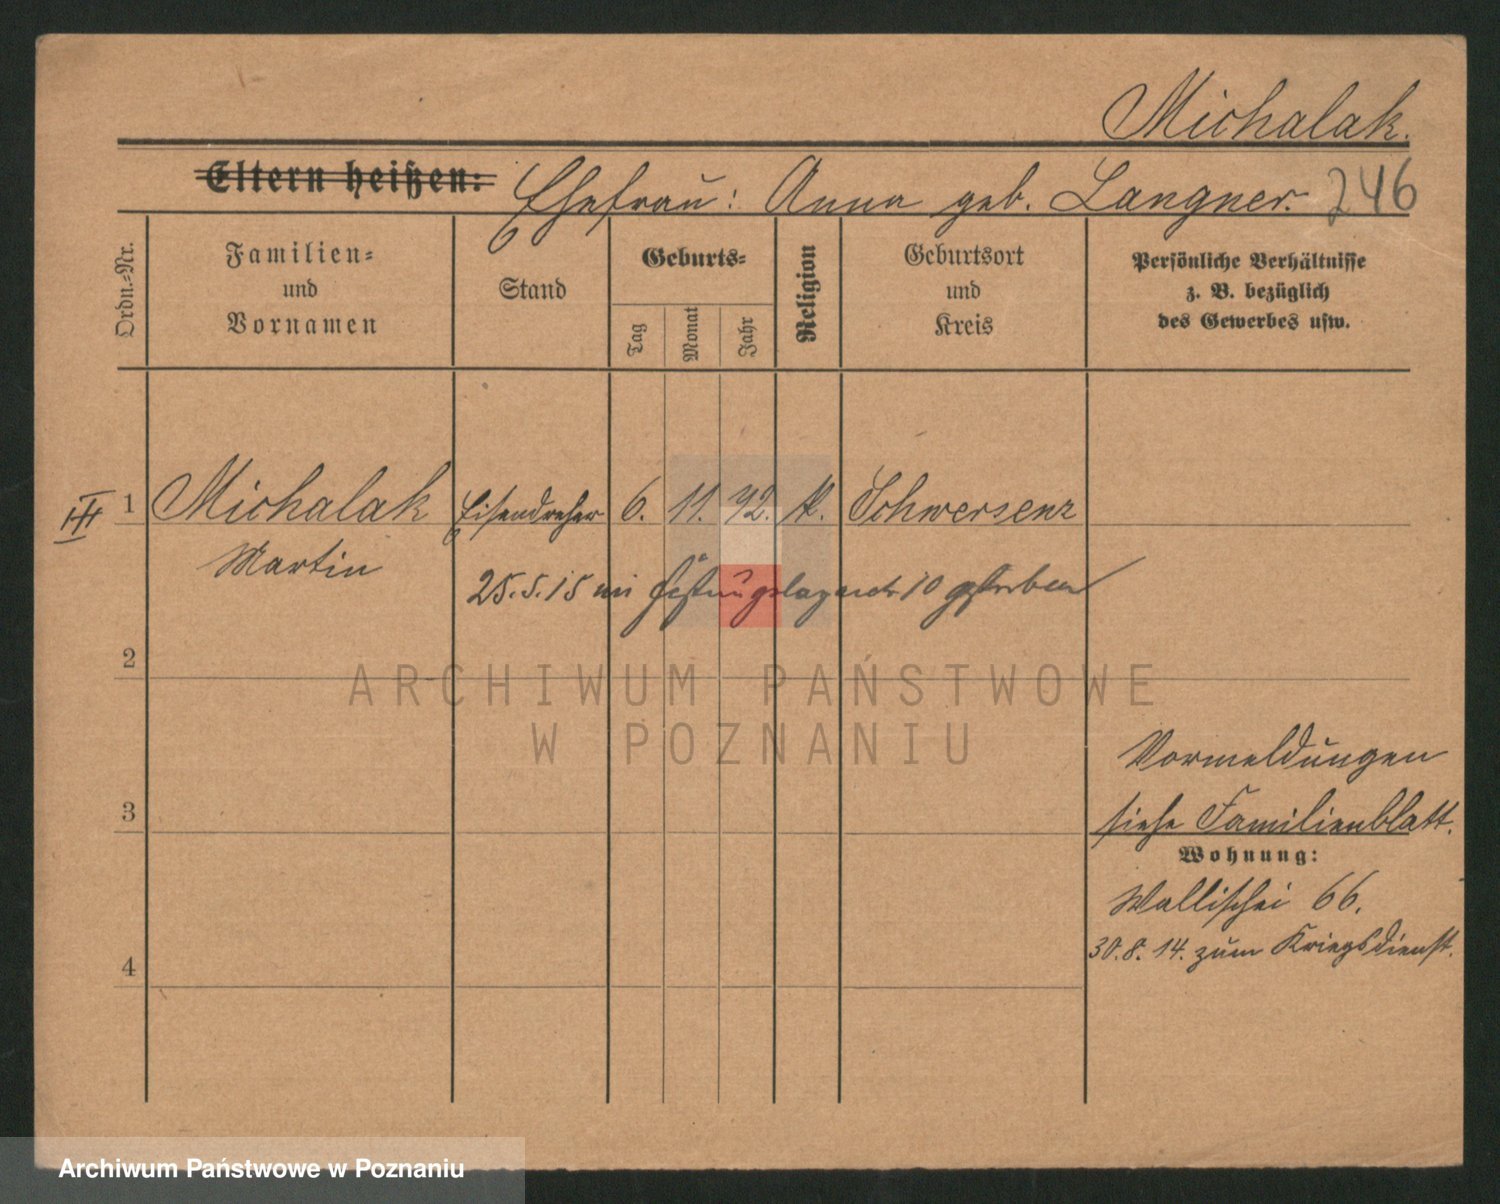 Michalak.
Eltern heißen: Ehefrau: Anna geb. Langner. 246
Ordn.-Nr.
Familien-
und
Vornamen
Stand
Geburts-
Tag
Monat
Jahr
Religion
Geburtsort
und
Kreis
Persönliche Verhältnisse
z. B. bezüglich
des Gewerbes usw.
III 1 Michalak Eisendreher 6. 11. 72. k. Schwersenz
Martin
25.5.15 im Festungslazarett 10 gestorben
2
ARCHIWUM PAŃSTWOWE
W POZNANIU
Vormeldungen
3 siehe Familienblatt.
Wohnung:
Wallischei 66.
30.8.14. zum Kriegsdienst.
4
Archiwum Państwowe w Poznaniu